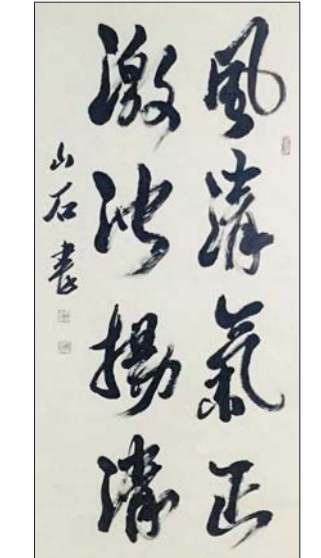 風清氣正
激浊揚清
山石書